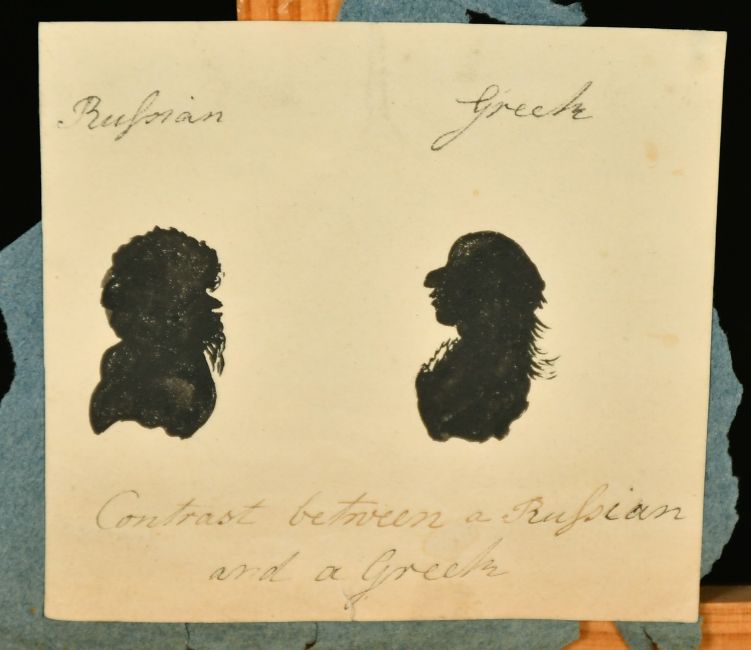 Ruſsian
Greek
Contrast between a Ruſsian
and a Greek